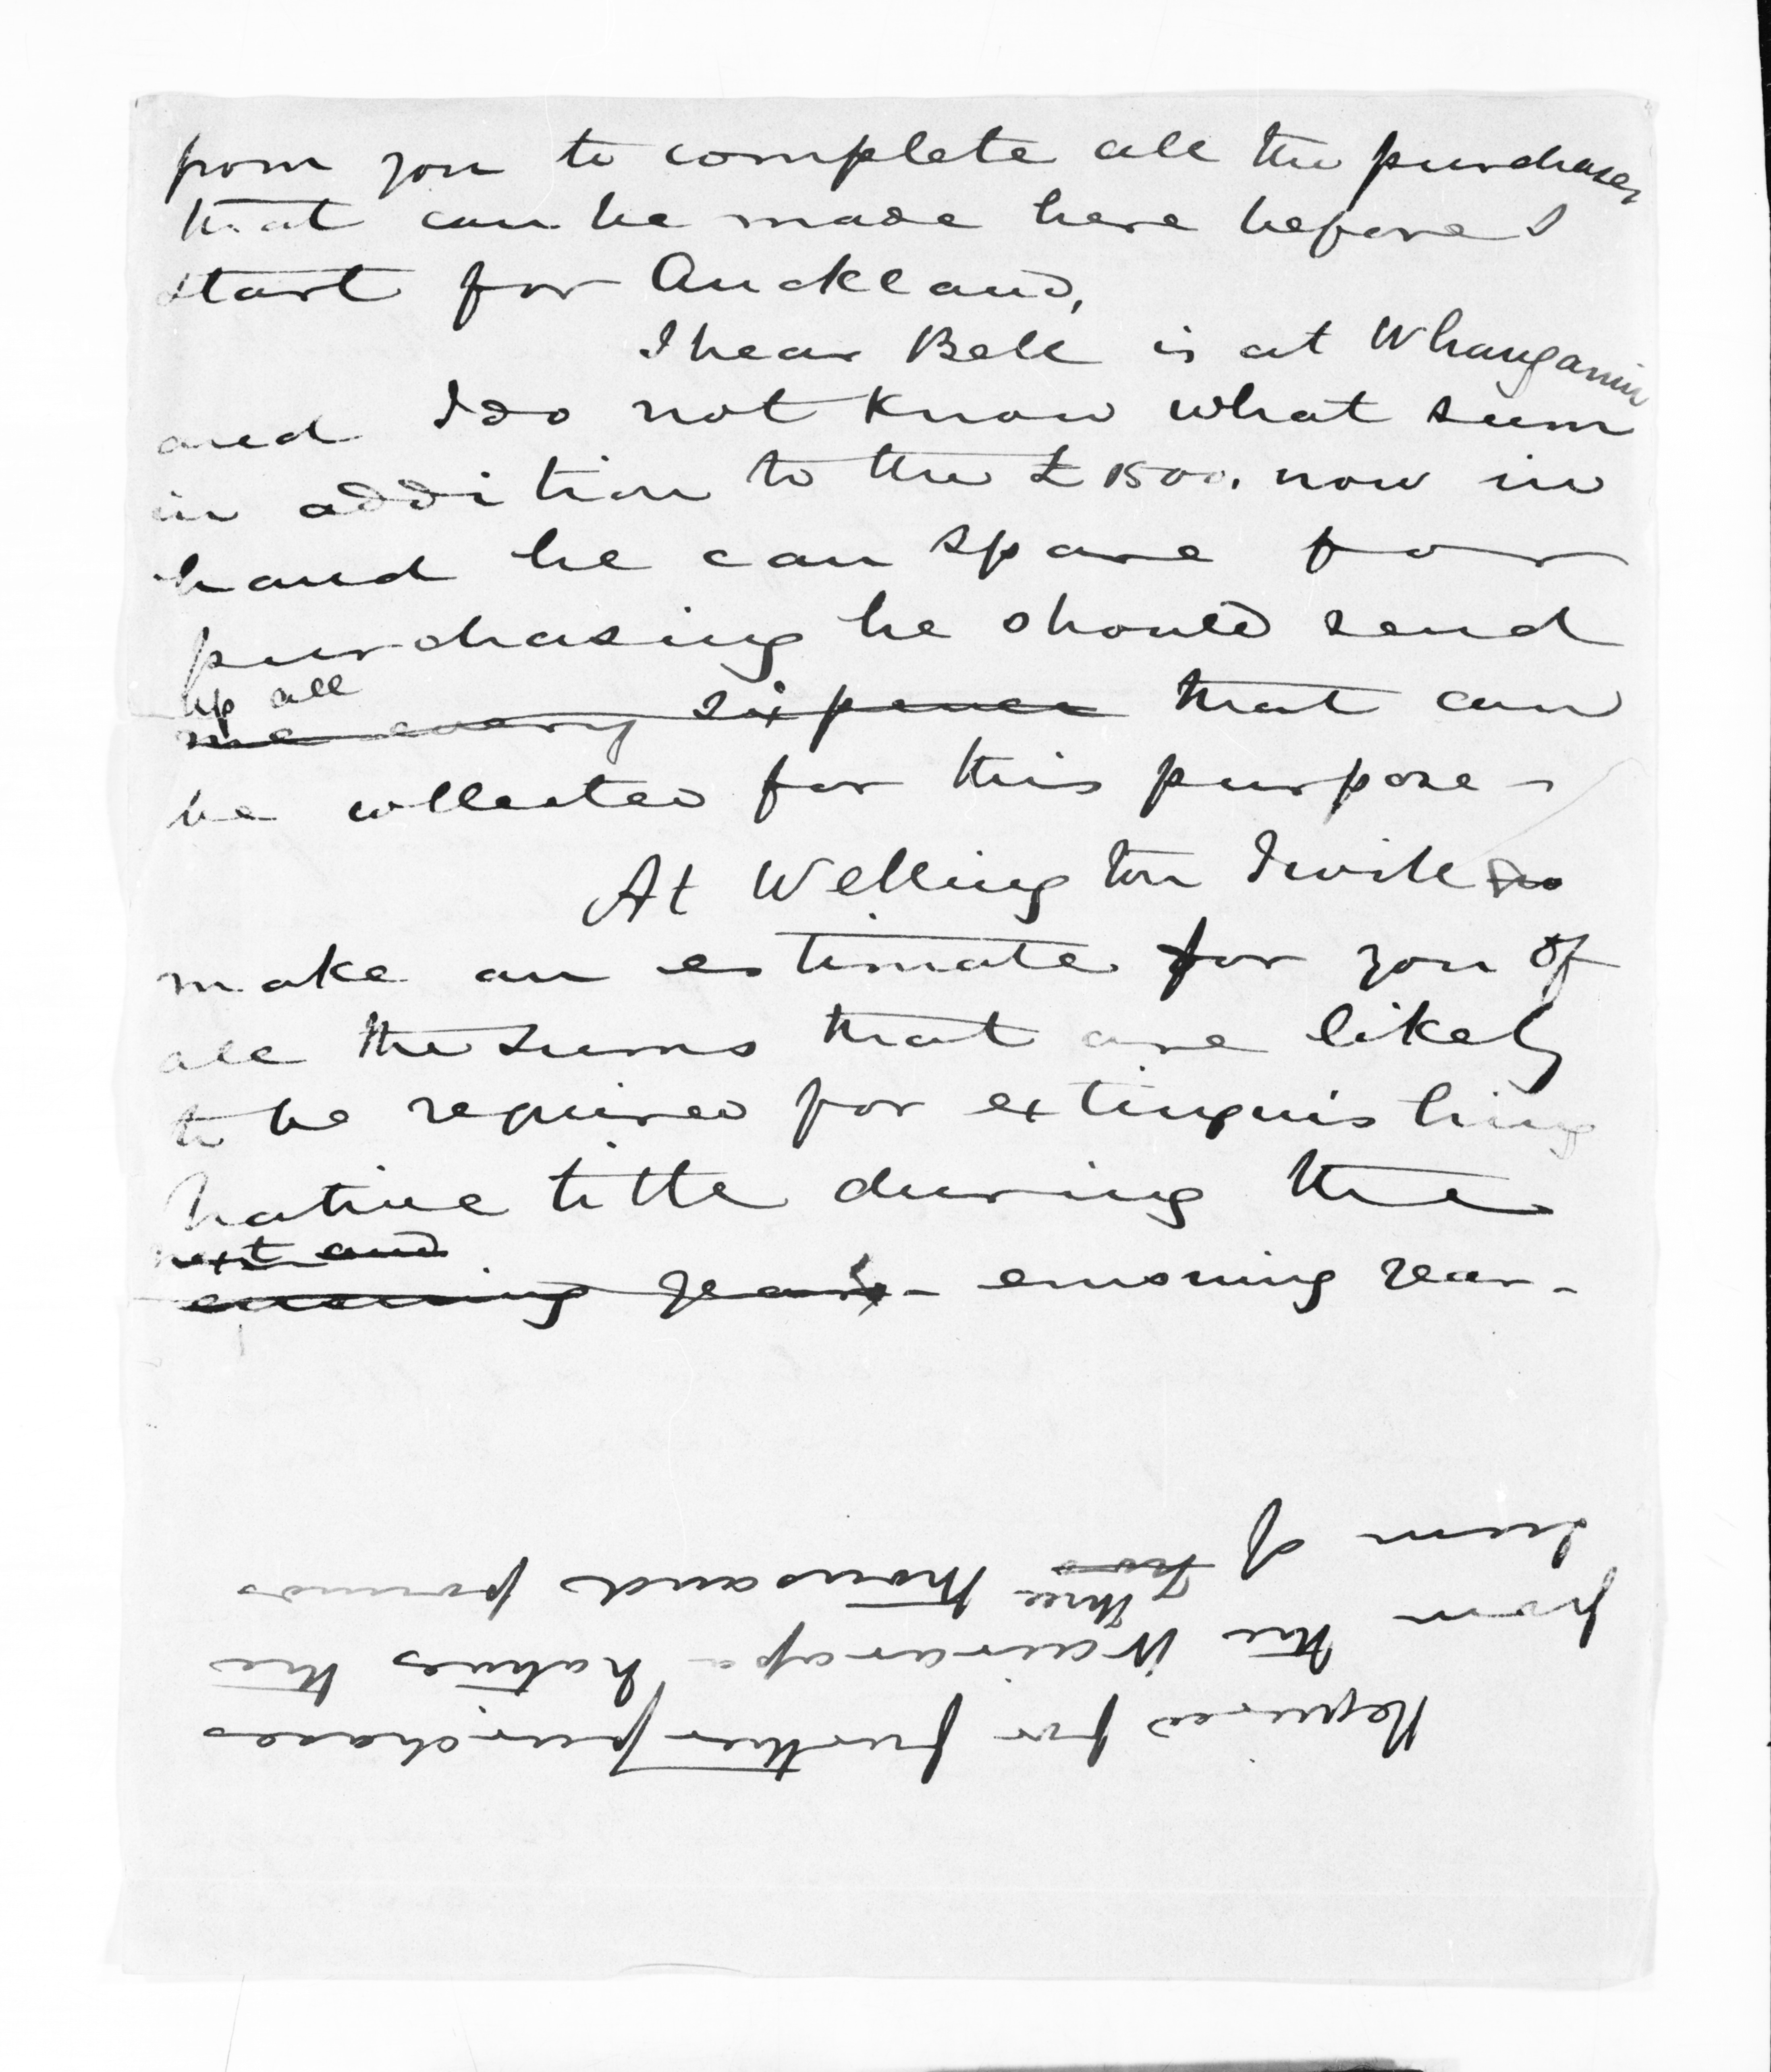 from you to complete all the purchases
that can be made here before I
start for Auckland,
I hear Bell is at Whanganui
and I do not know what sum
in addition to the £1500. now in
hand he can spare for
purchasing he should send
up all
me every sixpence that can
be collected for this purpose -
At Wellington I will do
make an estimate for you of
all the sums that are likely
to be required for extinguishing
native title during the
next and
ensuing years - ensuing year -
Required for further purchases
from the Wairarapa natives the
three
sum of two thousand pounds